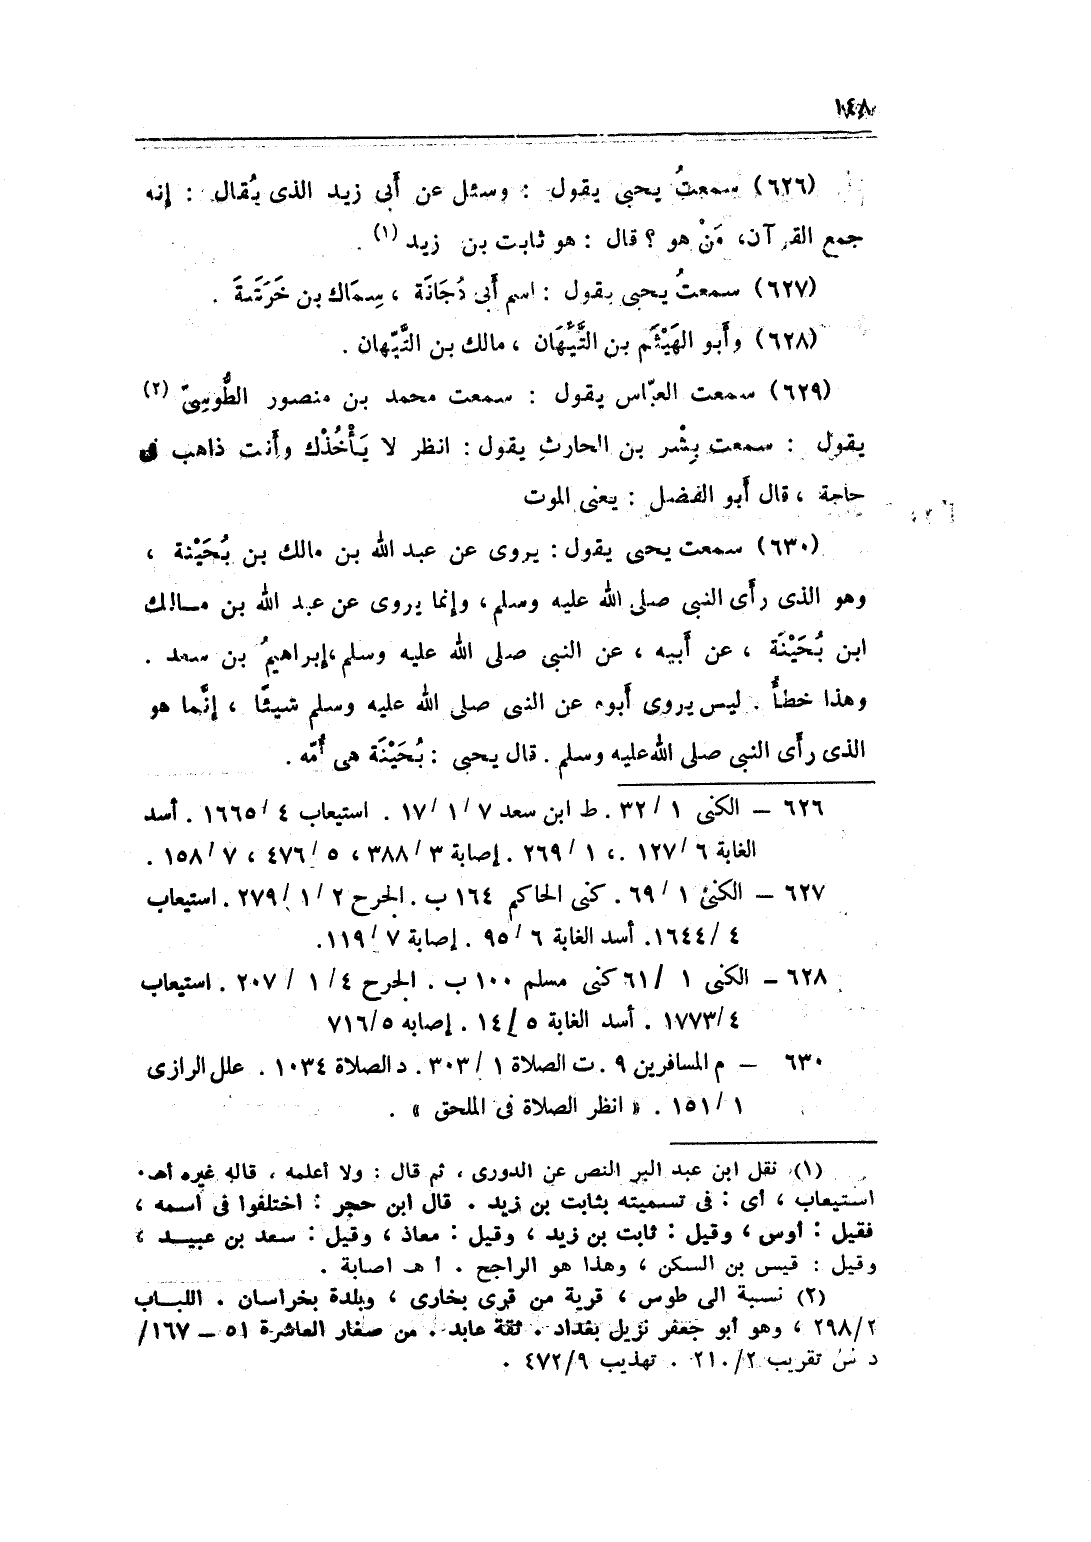 ١٤٨
(٦٢٦) سمعتُ يحيى يقول : وسئل عن أَبى زيد الذى يُقال : إنه
جمع القرآن، مَنْ هو ؟ قال : هو ثابت بن زيد (١) .
(٦٢٧) سمعتُ يحيى يقول : اسم أَبى دُجَانَة ، سِمَاك بن خَرَشَةَ .
(٦٢٨) وأَبو الهَيْثَم بن التَّيَّهَان ، مالك بن التَّيّهان .
(٦٢٩) سمعت العبّاس يقول : سمعت محمد بن منصور الطُّوسِىّ (٢)
يقول : سمعت بِشْر بن الحارثِ يقول : انظر لا يَأْخُذْك وأَنت ذاهب فى
حاجة ، قال أَبو الفضل : يعنى الموت
(٦٣٠) سمعت يحيى يقول : يروى عن عبد الله بن مالك بن بُحَيْنة ،
وهو الذى رأَى النبى صلى الله عليه وسلم ، وإنما يروى عن عبد الله بن مالك
ابن بُحَيْنَة ، عن أَبيه ، عن النبى صلى الله عليه وسلم ،إبراهيمُ بن سعد .
وهذا خطأٌ . ليس يروى أَبوه عن النبى صلى الله عليه وسلم شيئًا ، إنَّما هو
الذى رأَى النبى صلى الله عليه وسلم . قال يحيى : بُحَيْنَة هى أُمّه .
٦٢٦ – الكنى ١ /٣٢ . ط ابن سعد ٧ /١ /١٧ . استيعاب ٤ /١٦٦٥ . أسد
الغابة ٦ /١٢٧ . ، ١ /٢٦٩ . إصابة ٣ /٣٨٨ ، ٥ /٤٧٦ ، ٧ /١٥٨ .
٦٢٧ – الكنى ١ /٦٩ . كنى الحاكم ١٦٤ ب . الجرح ٢ /١ /٢٧٩ . استيعاب
٤ /١٦٤٤. أسد الغابة ٦ /٩٥ . إصابة ٧ /١١٩.
٦٢٨ – الكنى ١ /٦١ كنى مسلم ١٠٠ ب . الجرح ٤ /١ /٢٠٧ . استيعاب
٤ /١٧٧٣ . أسد الغابة ٥ /١٤ . إصابه ٥ /٧١٦
٦٣٠ – م المسافرين ٩ . ت الصلاة ١ /٣٠٣ . د الصلاة ١٠٣٤ . علل الرازى
١ /١٥١ . « انظر الصلاة فى الملحق » .
(١) نقل ابن عبد البر النص عن الدورى ، ثم قال : ولا أعلمه ، قاله غيره أهـ.
استيعاب ، أى : فى تسميته بثابت بن زيد . قال ابن حجر : اختلفوا فى اسمه ،
فقيل : أوس ، وقيل : ثابت بن زيد ، وقيل : معاذ ، وقيل : سعد بن عبيد ،
وقيل : قيس بن السكن ، وهذا هو الراجح . ا هـ اصابة .
(٢) نسبة الى طوس ، قرية من قرى بخارى ، وبلدة بخراسان . اللباب
٢٩٨/٢ ، وهو أبو جعفر نزيل بغداد . ثقة عابد . من صغار العاشرة ٥١ – ١٦٧/
د س تقريب ٢١٠/٢ . تهذيب ٤٧٢/٩ .